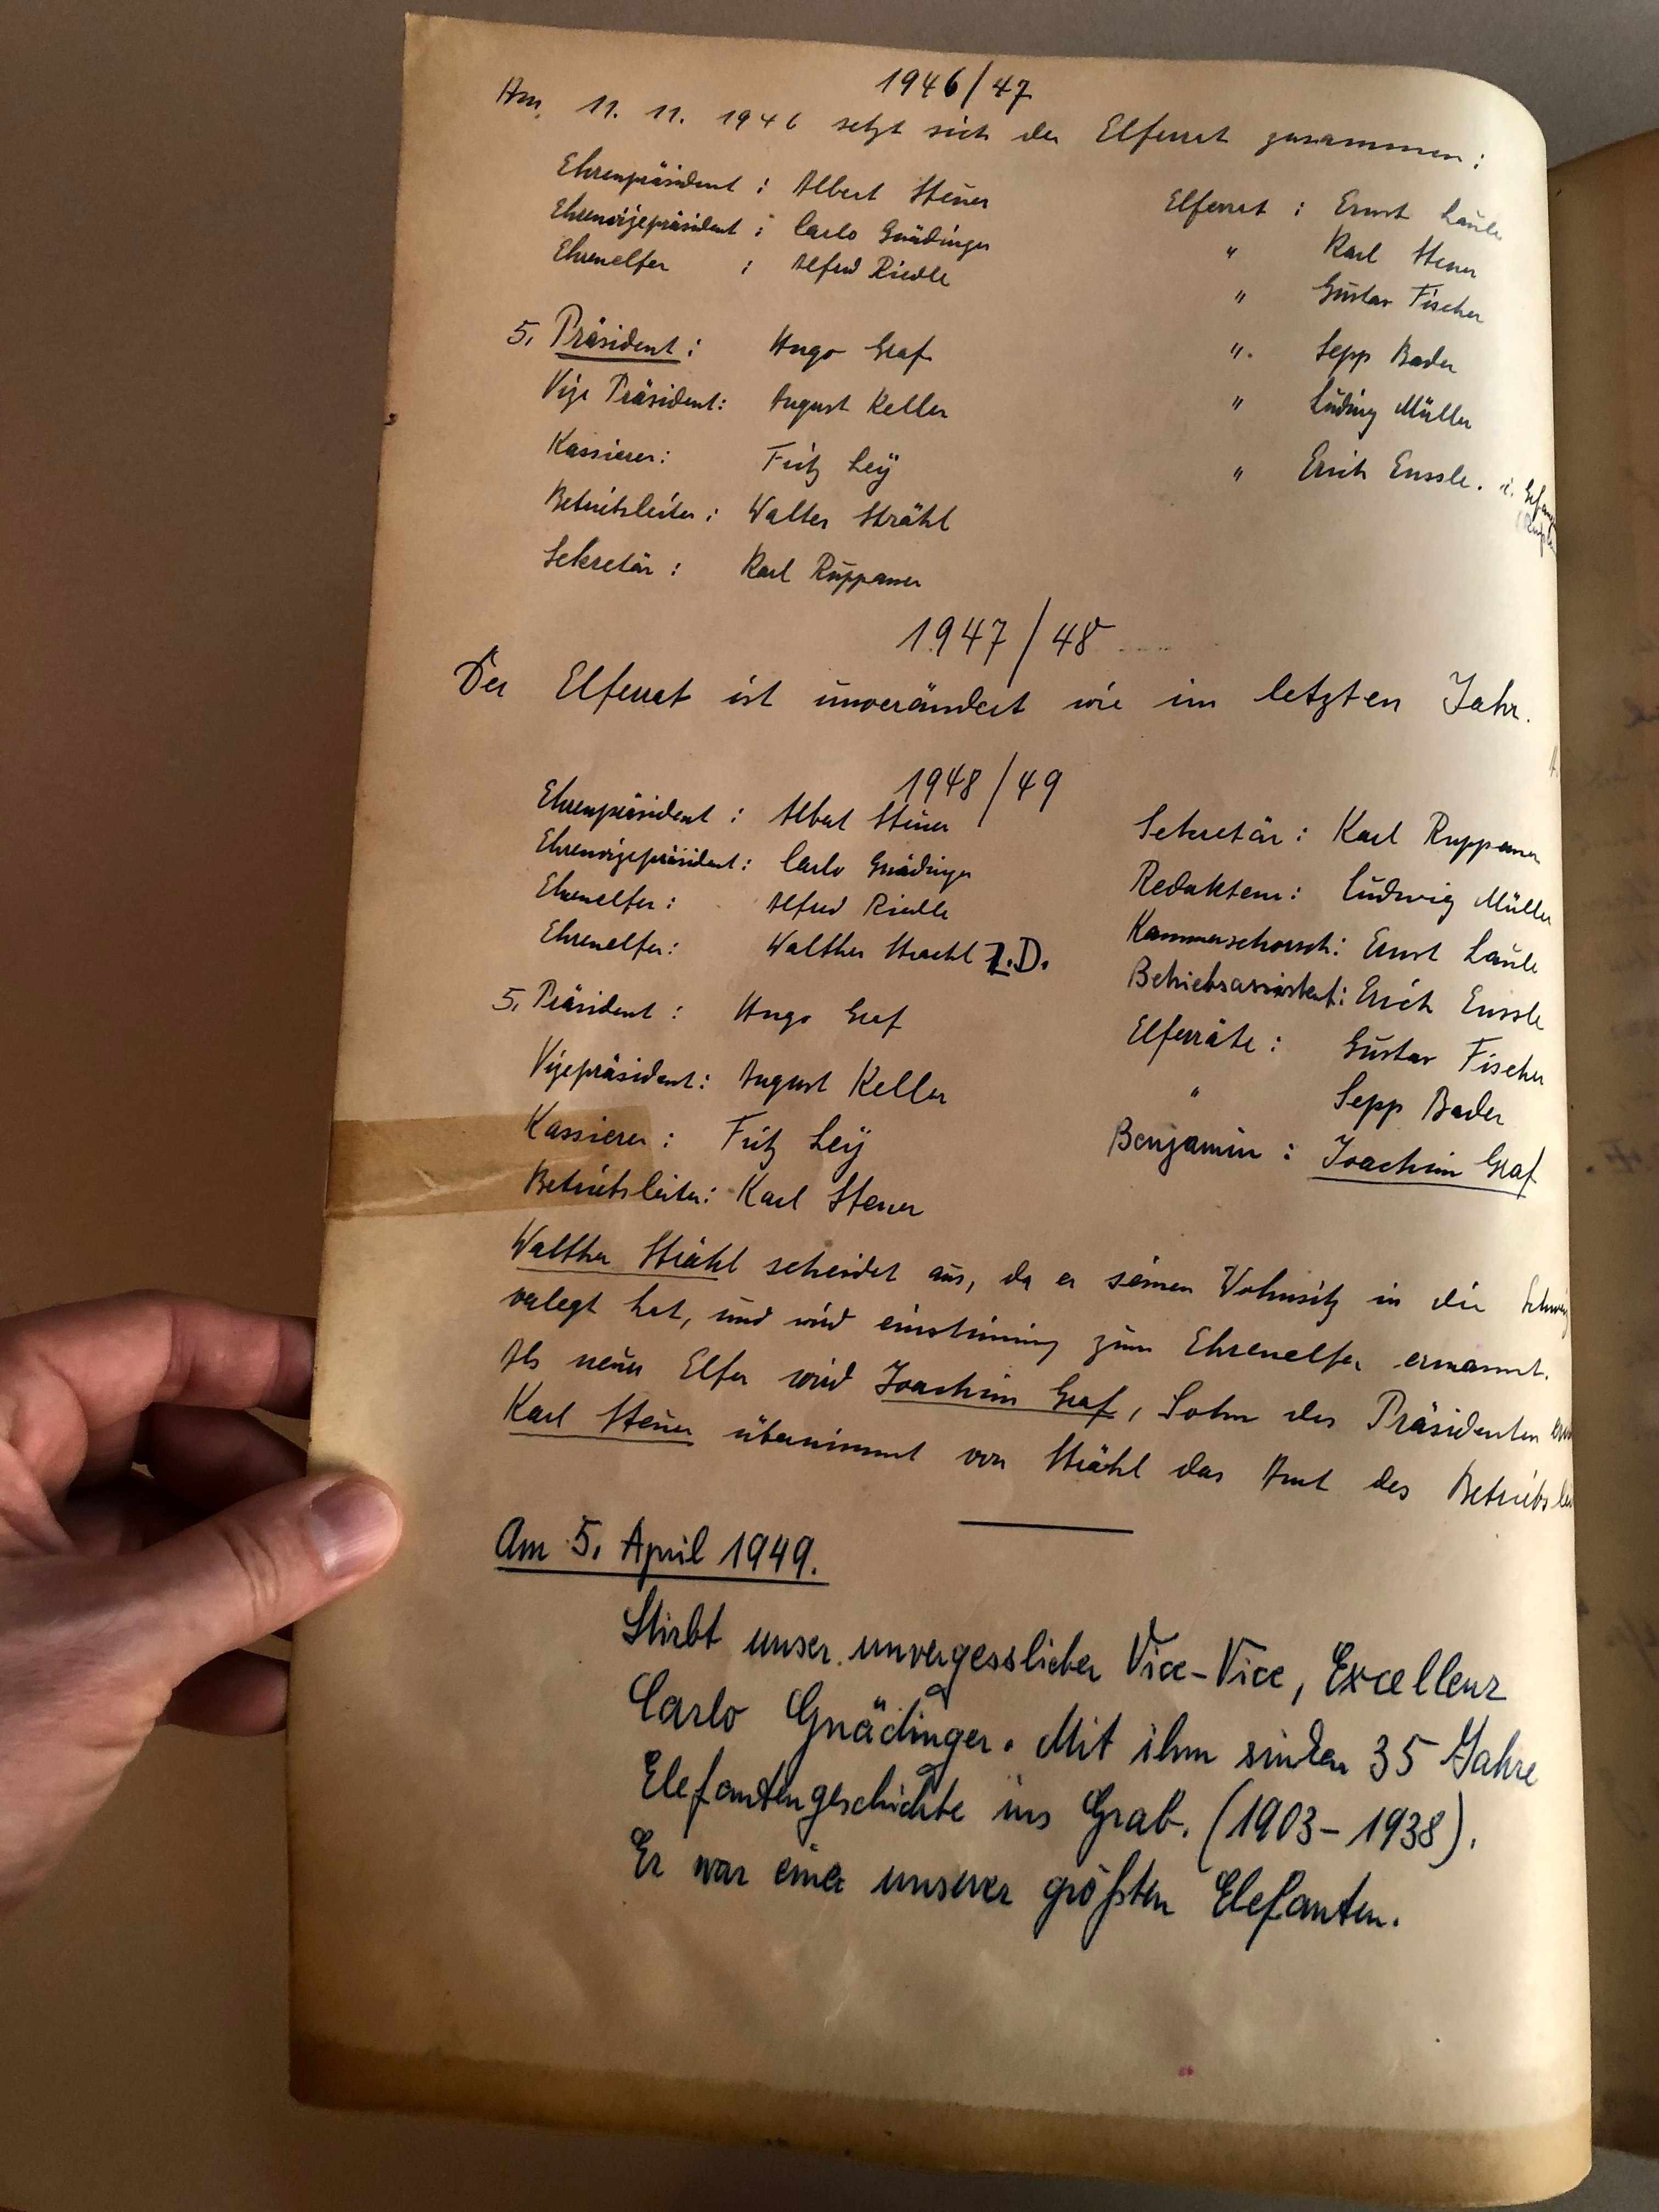 1946/47
Am 11. 11. 1946 setzt sich der Elferrat zusammen:
Ehrenpräsident : Albert Steuer
Ehrenvizepräsident : Carlo Gnädinger
Ehrenelfer : Alfred Riedle
5. Präsident : Hugo Graf
Vize Präsident: August Keller
Kassierer: Fritz Leÿ
Betriebsleiter : Walter Strähl
Sekretär : Karl Ruppaner
Elferrat : Ernst Läule
" Karl Steuer
" Gustav Fischer
" Sepp Bader
" Ludwig Müller
" Erich Enssle. i.
1947/48
Der Elferrat ist unverändert wie im letzten Jahr.
1948/49
Ehrenpräsident : Albert Steuer
Ehrenvizepräsident: Carlo Gnädinger
Ehrenelfer : Alfred Riedle
Ehrenelfer: Walther Straehl Z.D.
5. Präsident : Hugo Graf
Vizepräsident: August Keller
Kassierer : Fritz Leÿ
Betriebsleiter: Karl Steuer
Sekretär : Karl Ruppaner
Redakteur : Ludwig Müller
Kammerschorsch: Ernst Läule
Betriebsassistent: Erich Enssle
Elferräte : Gustav Fischer
" Sepp Bader
Benjamin : Joachim Graf
Walther Strähl scheidet aus, da er seinen Wohnsitz in die Schweiz
verlegt hat, und wird einstimmig zum Ehrenelfer ernannt.
Als neuer Elfer wird Joachim Graf, Sohn des Präsidenten
Karl Steuer übernimmt von Strähl das Amt des Betriebslei
Am 5. April 1949.
Stirbt unser unvergesslicher Vice-Vice, Excellenz
Carlo Gnädinger. Mit ihm sinken 35 Jahre
Elefantengeschichte ins Grab. (1903-1938).
Er war einer unserer größten Elefanten.